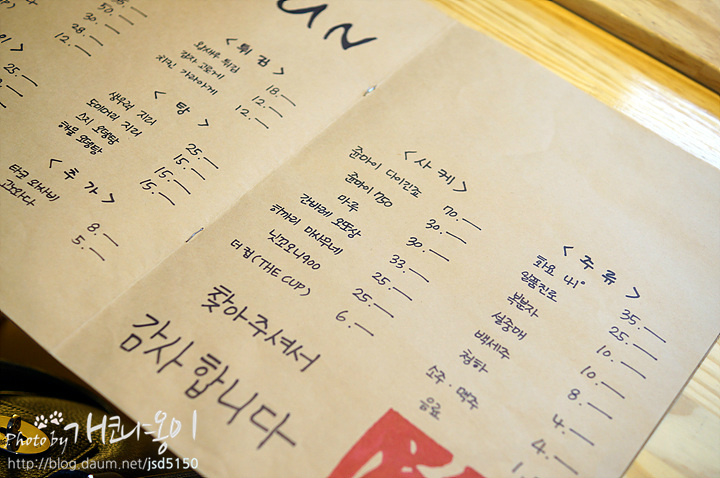 UN
50.—
30.—
28.—
12.—
25.—
<튀 김>
왕새우 튀김 18.—
감자 고로케 12.—
치킨 가라아게 12.—
<탕>
생우럭 지리 25.—
도미머리 지리 15.—
스지 오뎅탕 15.—
해물 오뎅탕 15.—
<추 가>
타코 와사비 8.—
5.—
<사 케>
준마이 다이긴죠 70.—
준마이 750 30.—
마루 30.—
간바레 오또상 33.—
히까리 마사무네 25.—
닛꼬오니900 25.—
더 컵(THE CUP) 6.—
<주 류>
화요 41° 35.—
일품진로 25.—
복분자 10.—
설중매 10.—
백세주 8.—
청하 4.—
소주·맥주 4.—
음료
찾아주셔서
감사합니다
Photo by 개코냐옹이
http://blog.daum.net/jsd5150